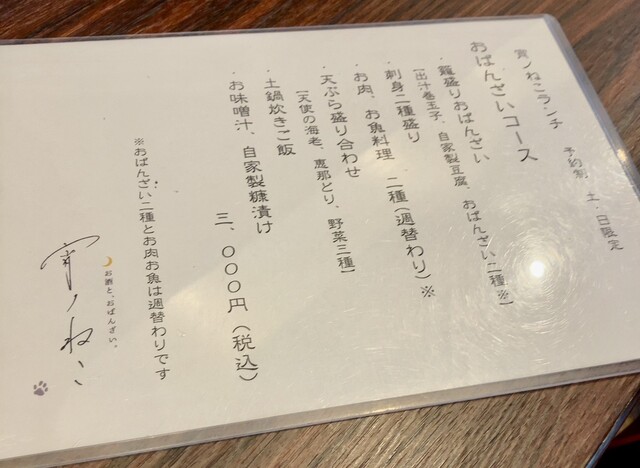 宵ノねこランチ 予約制 土・日限定
おばんざいコース
・籠盛りおばんざい
【出汁巻玉子、自家製豆腐、おばんざい二種※】
・刺身二種盛り
・お肉、お魚料理 二種(週替わり)※
・天ぷら盛り合わせ
【天使の海老、恵那どり、野菜三種】
・土鍋炊きご飯
・お味噌汁、自家製糠漬け
三、〇〇〇円(税込)
※おばんざい二種とお肉お魚は週替わりです
お酒と、おばんざい。
宵ノねこ